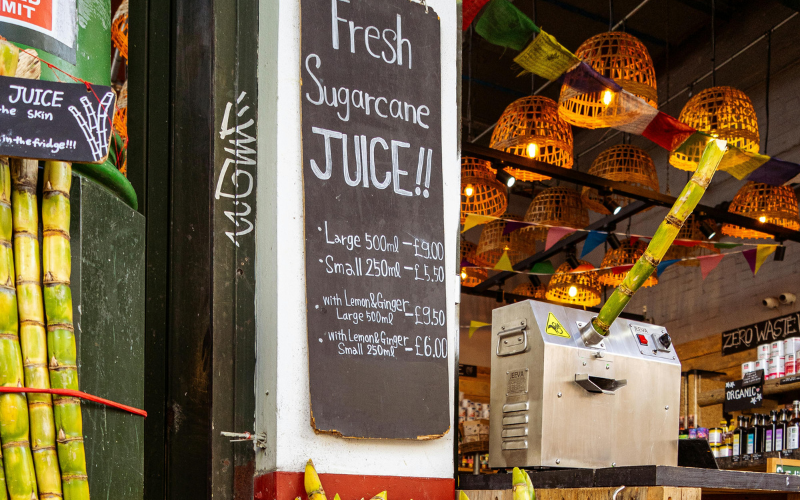 MIT
JUICE
the SKIN
in-the fridge!!!
Fresh
Sugarcane
JUICE!!
• Large 500ml - £9.00
• Small 250ml - £5.50
• with Lemon&Ginger
Large 500ml - £9.50
• with Lemon&Ginger
Small 250ml - £6.00
ZERO WASTE
ORGANIC